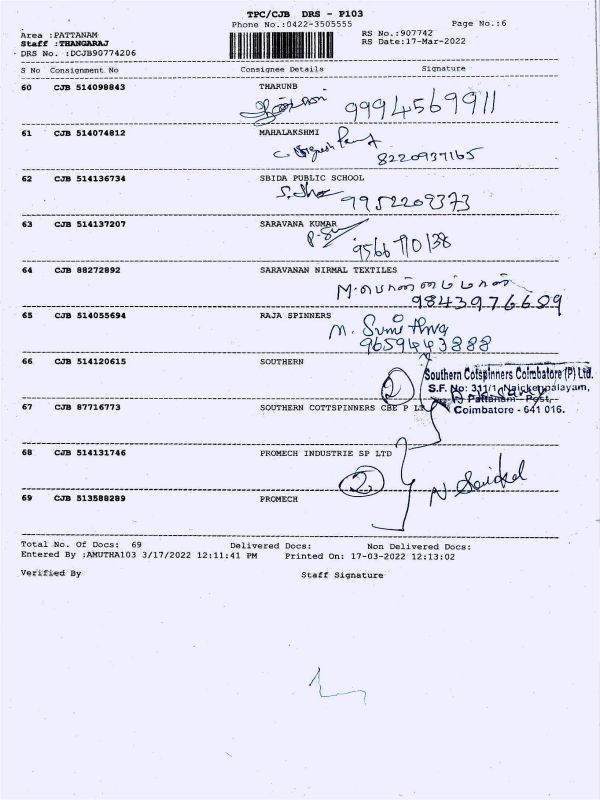 TPC/CJB DRS - P103
Phone No.:0422-3505555 Page No.:6
Area :PATTANAM RS No.:907742
Staff :THANGARAJ RS Date:17-Mar-2022
DRS No. :DCJB90774206
S No Consignment No Consignee Details Signature
60 CJB 514098843 THARUNB
9994569911
61 CJB 514074812 MAHALAKSHMI
8220937165
62 CJB 514136734 SBIDA PUBLIC SCHOOL
9952209373
63 CJB 514137207 SARAVANA KUMAR
9566770138
64 CJB 88272892 SARAVANAN NIRMAL TEXTILES
9843976689
65 CJB 514055694 RAJA SPINNERS
9659443888
66 CJB 514120615 SOUTHERN
Southern Cotspinners Coimbatore (P) Ltd.
S.F. No: 311/1, Naickenpalayam,
Pattanam Post,
Coimbatore - 641 016.
2
67 CJB 87716773 SOUTHERN COTTSPINNERS CBE P LT
68 CJB 514131746 PROMECH INDUSTRIE SP LTD
2
69 CJB 513588289 PROMECH
Total No. Of Docs: 69 Delivered Docs: Non Delivered Docs:
Entered By :AMUTHA103 3/17/2022 12:11:41 PM Printed On: 17-03-2022 12:13:02
Verified By Staff Signature